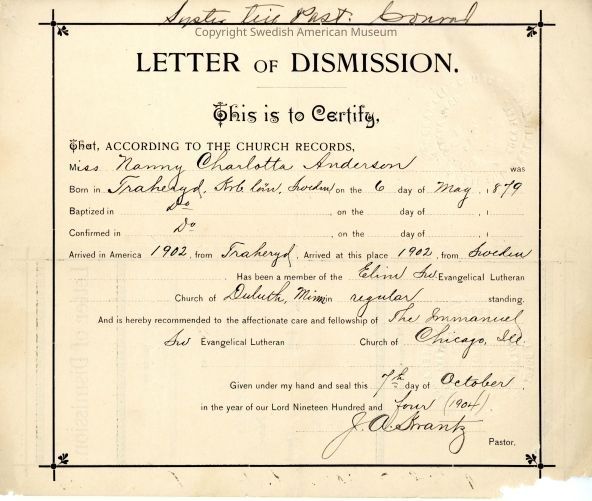 Syster till Past. Conrad
Copyright Swedish American Museum
LETTER OF DISMISSION.
This is to Certify,
That, ACCORDING TO THE CHURCH RECORDS,
Miss Nanny Charlotta Anderson was
Born in Traheryd, Krb län, Sweden on the 6 day of May, 1879
Baptized in Do, on the day of, 1
Confirmed in Do, on the day of, 1
Arrived in America 1902, from Traheryd, Arrived at this place 1902, from Sweden
Has been a member of the Elim Sw Evangelical Lutheran
Church of Duluth, Minn in regular standing.
And is hereby recommended to the affectionate care and fellowship of The Immanuel
Sw Evangelical Lutheran Church of Chicago, Ill
Given under my hand and seal this 7th day of October
in the year of our Lord Nineteen Hundred and four (1904).
J. A. Krantz
Pastor.